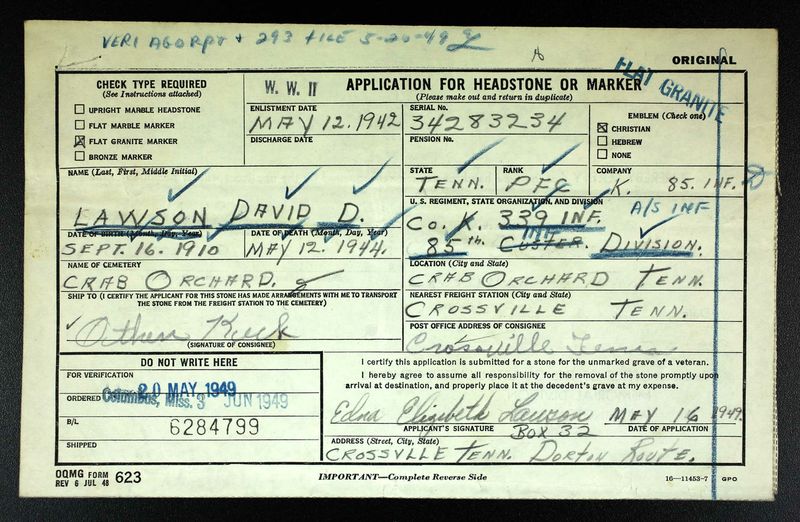 VERI AGO RPT + 293 FILE 5-20-49
ORIGINAL
FLAT GRANITE
CHECK TYPE REQUIRED
(See Instructions attached)
UPRIGHT MARBLE HEADSTONE
FLAT MARBLE MARKER
FLAT GRANITE MARKER
BRONZE MARKER
W. W. II
APPLICATION FOR HEADSTONE OR MARKER
(Please make out and return in duplicate)
ENLISTMENT DATE
MAY 12. 1942
DISCHARGE DATE
SERIAL No.
34283234
PENSION No.
EMBLEM (Check one)
CHRISTIAN
HEBREW
NONE
NAME (Last, First, Middle Initial)
LAWSON DAVID D.
STATE
TENN.
RANK
PFC
COMPANY
K. 85. INF.
U. S. REGIMENT, STATE ORGANIZATION, AND DIVISION
A/S INF
CO. K. 339 INF.
INF
85th. CUSTER. DIVISION.
DATE OF BIRTH (Month, Day, Year)
SEPT. 16. 1910
DATE OF DEATH (Month, Day, Year)
MAY 12. 1944.
NAME OF CEMETERY
CRAB ORCHARD.
LOCATION (City and State)
CRAB ORCHARD TENN.
SHIP TO (I CERTIFY THE APPLICANT FOR THIS STONE HAS MADE ARRANGEMENTS WITH ME TO TRANSPORT
THE STONE FROM THE FREIGHT STATION TO THE CEMETERY)
(SIGNATURE OF CONSIGNEE)
NEAREST FREIGHT STATION (City and State)
CROSSVILLE TENN.
POST OFFICE ADDRESS OF CONSIGNEE
Crossville Tenn
DO NOT WRITE HERE
FOR VERIFICATION
20 MAY 1949
ORDERED Columbus, Miss. 3 JUN 1949
B/L
6284799
SHIPPED
I certify this application is submitted for a stone for the unmarked grave of a veteran.
I hereby agree to assume all responsibility for the removal of the stone promptly upon
arrival at destination, and properly place it at the decedent's grave at my expense.
Edna Elizabeth Lawson MAY 16 1949.
APPLICANT'S SIGNATURE
DATE OF APPLICATION
BOX 32
ADDRESS (Street, City, State)
CROSSVLLE TENN. DORTON ROUTE.
OQMG FORM 623
REV 6 JUL 48
IMPORTANT—Complete Reverse Side
16—11453-7 GPO